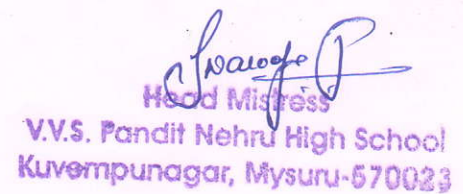 Head Mistress
V.V.S. Pandit Nehru High School
Kuvempunagar, Mysuru-570023